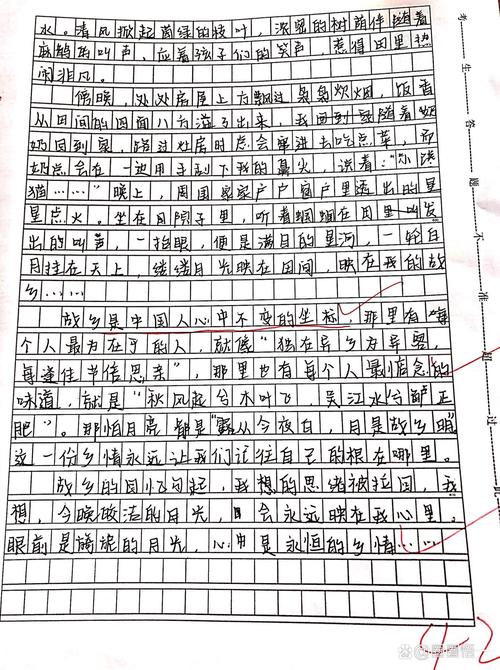 水。清风掀起茵绿的枝叶，浓密的树荫伴随着
的叫声，应着孩子们的笑声，惹得田里热
闹非凡。
傍晚，处处房屋上方飘过袅袅炊烟，饭香
从田间的四面八方溢了出来，我回到家随着奶
奶回到家，路过灶房时总会窜进去吃点菜，而
奶总会在一边用手刮下我的鼻尖，说着：“小馋
猫……”晚上，周围家家户户窗户里透出的星
星点火。坐在风院子里，听着蝈蝈在田里叫发
出的叫声，一抬眼，便是满目的星河，一轮白
月挂在天上，缕缕月光映在田间，映在我的故
乡……
故乡是中国人心中不变的坐标，那里有每
个人最为在乎的人，就像“独在异乡为异客，
每逢佳节倍思亲”，那里也有每个人最惦念的
味道，就是“秋风起兮木叶飞，吴江水兮鲈正
肥”。那怕月亮都是“露从今夜白，月是故乡明”
这一份乡情永远让我们记住自己的根在哪里。
故乡的回忆勾起，我想的思绪被拉回，我
想，今晚皎洁的月光，会永远映在我心里。
眼前是旖旎的月光，心中是永恒的乡情……
考生答题不准超过